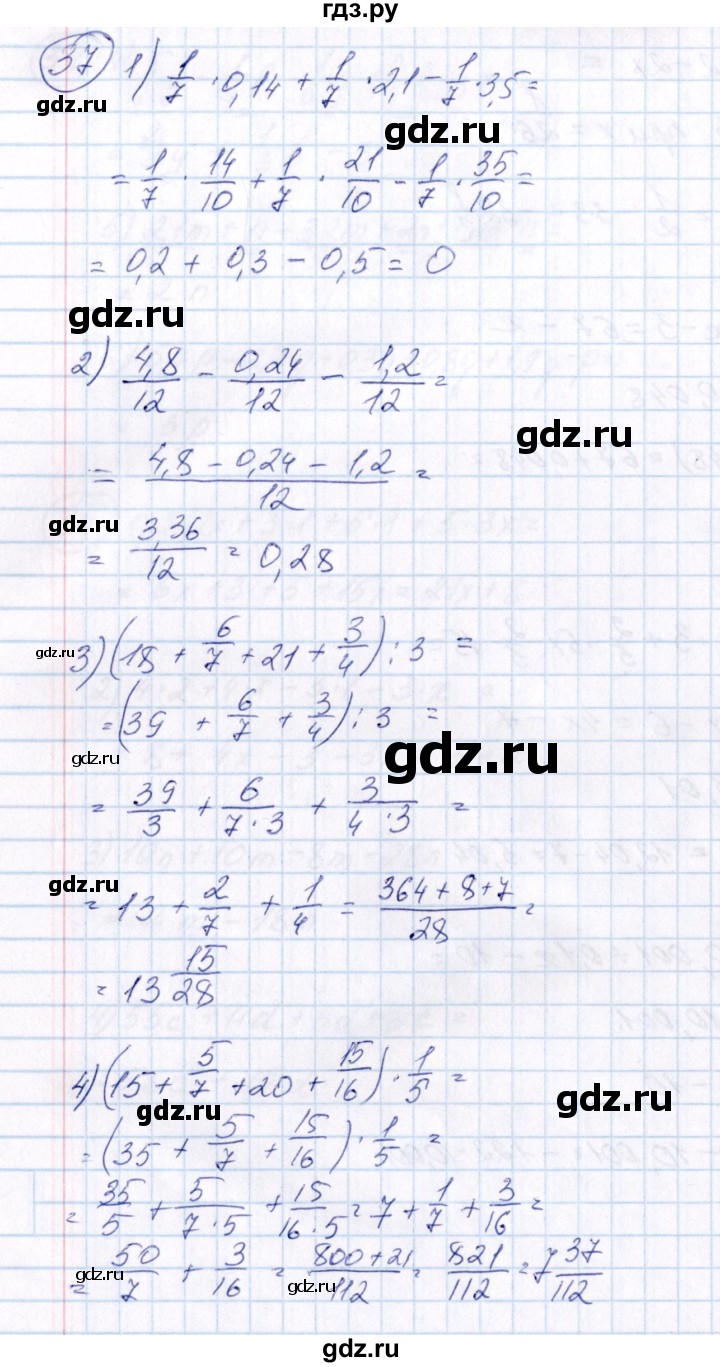 гдз.ру
37 1) 1/7 · 0,14 + 1/7 · 2,1 − 1/7 · 3,5 =
gdz.ru
gdz.ru
= 1/7 · 14/10 + 1/7 · 21/10 − 1/7 · 35/10 =
= 0,2 + 0,3 − 0,5 = 0
gdz.ru
2) 4,8/12 − 0,24/12 − 1,2/12 =
gdz.ru
= (4,8 − 0,24 − 1,2)/12 =
gdz.ru
= 3,36/12 = 0,28
gdz.ru
3) (18 + 6/7 + 21 + 3/4) : 3 =
= (39 + 6/7 + 3/4) : 3 =
gdz.ru
gdz.ru
= 39/3 + 6/(7·3) + 3/(4·3) =
gdz.ru
= 13 + 2/7 + 1/4 = (364+8+7)/28 =
= 13 15/28
gdz.ru
4) (15 + 5/7 + 20 + 15/16) · 1/5 =
gdz.ru
gdz.ru
= (35 + 5/7 + 15/16) · 1/5 =
= 35/5 + 5/(7·5) + 15/(16·5) = 7 + 1/7 + 3/16 =
= 50/7 + 3/16 = (800+21)/112 = 821/112 = 7 37/112
gdz.ru
gdz.ru
gdz.ru